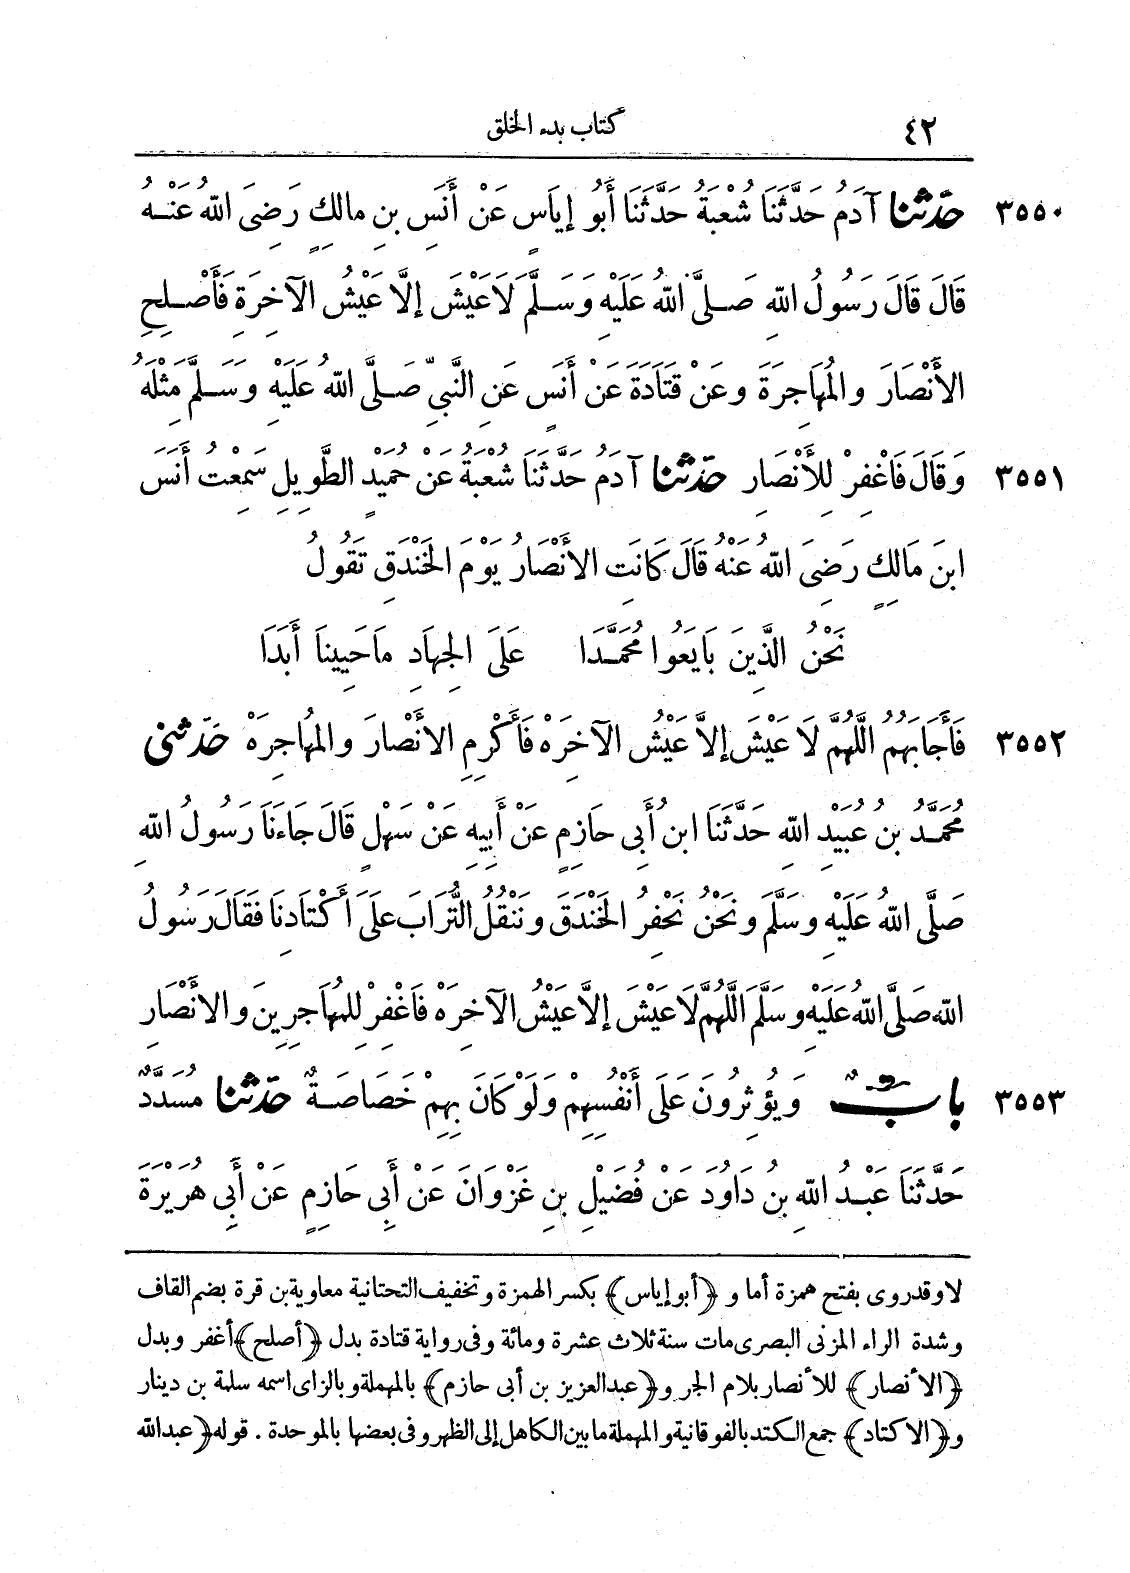 ٤٢ كتاب بدء الخلق
٣٥٥٠ حَدَّثَنَا آدَمُ حَدَّثَنَا شُعْبَةُ حَدَّثَنَا أَبُو إِيَاسٍ عَنْ أَنَسِ بْنِ مَالِكٍ رَضِىَ اللهُ عَنْهُ
قَالَ قَالَ رَسُولُ اللهِ صَلَّى اللهُ عَلَيْهِ وَسَلَّمَ لَاعَيْشَ إِلَّا عَيْشُ الآخِرَةِ فَأَصْلِحِ
الأَنْصَارَ وَالمُهَاجِرَةَ وَعَنْ قَتَادَةَ عَنْ أَنَسٍ عَنِ النَّبِىِّ صَلَّى اللهُ عَلَيْهِ وَسَلَّمَ مِثْلَهُ
٣٥٥١ وَقَالَ فَاغْفِرْ لِلأَنْصَارِ حَدَّثَنَا آدَمُ حَدَّثَنَا شُعْبَةُ عَنْ حُمَيْدٍ الطَّوِيلِ سَمِعْتُ أَنَسَ
ابنَ مَالِكٍ رَضِىَ اللهُ عَنْهُ قَالَ كَانَتِ الأَنْصَارُ يَوْمَ الخَنْدَقِ تَقُولُ
نَحْنُ الَّذِينَ بَايَعُوا مُحَمَّدَا عَلَى الجِهَادِ مَاحَيِينَا أَبَدَا
٣٥٥٢ فَأَجَابَهُمُ اللَّهُمَّ لَا عَيْشَ إِلاَّ عَيْشُ الآخِرَهْ فَأَكْرِمِ الأَنْصَارَ وَالمُهَاجِرَهْ حَدَّثَنِى
مُحَمَّدُ بْنُ عُبَيْدِ اللهِ حَدَّثَنَا ابنُ أَبِى حَازِمٍ عَنْ أَبِيهِ عَنْ سَهْلٍ قَالَ جَاءَنَا رَسُولُ اللهِ
صَلَّى اللهُ عَلَيْهِ وَسَلَّمَ وَنَحْنُ نَحْفِرُ الخَنْدَقَ وَنَنْقُلُ التُّرَابَ عَلَى أَكْتَادِنَا فَقَالَ رَسُولُ
اللهِ صَلَّى اللهُ عَلَيْهِ وَسَلَّمَ اللَّهُمَّ لَاعَيْشَ إِلَّا عَيْشُ الآخِرَهْ فَاغْفِرْ لِلمُهَاجِرِينَ وَالأَنْصَارِ
٣٥٥٣ بابٌ وَيُؤْثِرُونَ عَلَى أَنْفُسِهِمْ وَلَوْ كَانَ بِهِمْ خَصَاصَةٌ حَدَّثَنَا مُسَدَّدٌ
حَدَّثَنَا عَبْدُ اللهِ بنُ دَاوُدَ عَنْ فُضَيْلِ بنِ غَزْوَانَ عَنْ أَبِى حَازِمٍ عَنْ أَبِى هُرَيْرَةَ
لا وقد روى بفتح همزة أما و ﴿أبو إياس﴾ بكسر الهمزة وتخفيف التحتانية معاوية بن قرة بضم القاف
وشدة الراء المزنى البصرى مات سنة ثلاث عشرة ومائة وفى رواية قتادة بدل ﴿أصلح﴾ أغفر وبدل
﴿الأنصار﴾ للأنصار بلام الجر و﴿عبدالعزيز بن أبى حازم﴾ بالمهملة وبالزاى اسمه سلمة بن دينار
و﴿الاكتاد﴾ جمع الكتد بالفوقانية والمهملة ما بين الكاهل إلى الظهر وفى بعضها بالموحدة . قوله ﴿عبدالله